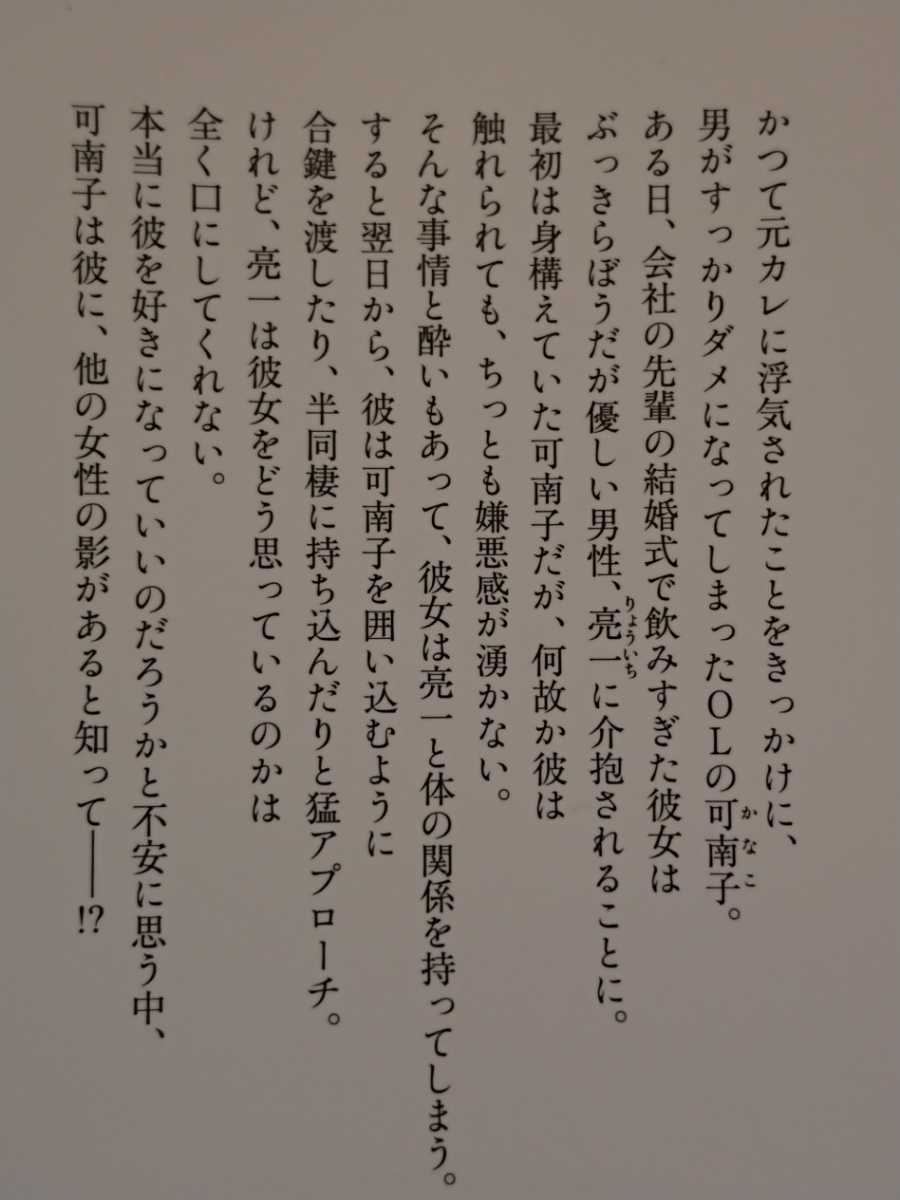 かつて元カレに浮気されたことをきっかけに、
男がすっかりダメになってしまったOLの可南子。
かなこ
ある日、会社の先輩の結婚式で飲みすぎた彼女は
ぶっきらぼうだが優しい男性、亮一に介抱されることに。
りょういち
最初は身構えていた可南子だが、何故か彼は
触れられても、ちっとも嫌悪感が湧かない。
そんな事情と酔いもあって、彼女は亮一と体の関係を持ってしまう。
すると翌日から、彼は可南子を囲い込むように
合鍵を渡したり、半同棲に持ち込んだりと猛アプローチ。
けれど、亮一は彼女をどう思っているのかは
全く口にしてくれない。
本当に彼を好きになっていいのだろうかと不安に思う中、
可南子は彼に、他の女性の影があると知って――!?